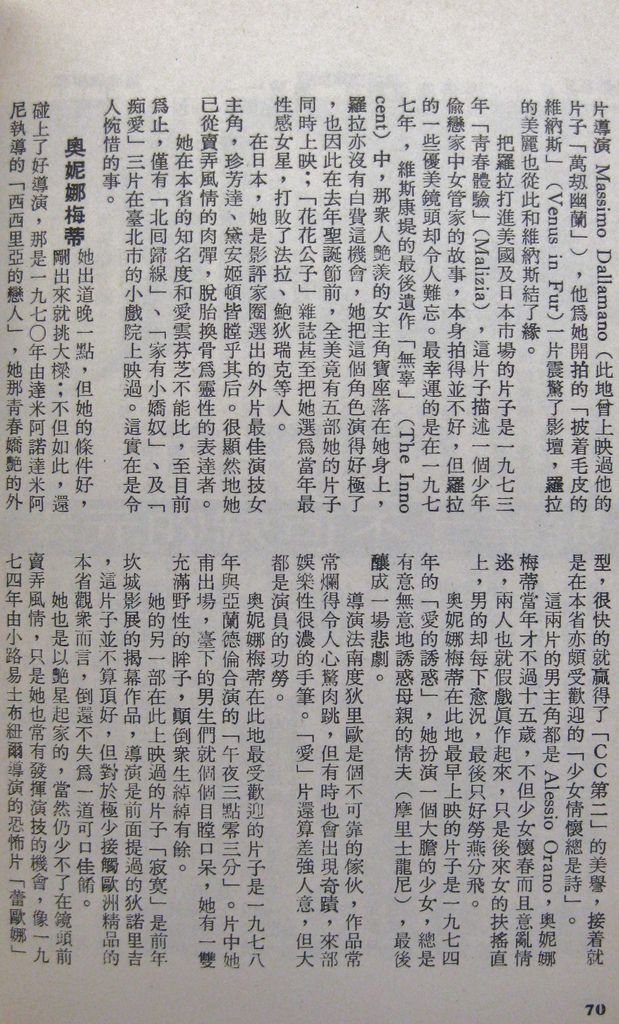 片導演 Massimo Dallamano（此地曾上映過他的
片子「萬刼幽蘭」），他爲她開拍的「披着毛皮的
維納斯」（Venus in Fur）一片震驚了影壇，羅拉
的美麗也從此和維納斯結了緣。
把羅拉打進美國及日本市場的片子是一九七三
年「青春體驗」（Malizia），這片子描述一個少年
偸戀家中女管家的故事，本身拍得並不好，但羅拉
的一些優美鏡頭却令人難忘。最幸運的是在一九七
七年，維斯康堤的最後遺作「無辜」（The Inno
cent）中，那衆人艶羨的女主角寶座落在她身上，
羅拉亦沒有白費這機會，她把這個角色演得好極了
，也因此在去年聖誕節前，全美竟有五部她的片子
同時上映；「花花公子」雜誌甚至把她選爲當年最
性感女星，打敗了法拉、鮑狄瑞克等人。
在日本，她是影評家圈選出的外片最佳演技女
主角，珍芳達、黛安姬頓皆瞠乎其后。很顯然地她
已從賣弄風情的肉彈，脫胎換骨爲靈性的表達者。
她在本省的知名度和愛雲芬芝不能比，至目前
爲止，僅有「北囘歸線」、「家有小嬌奴」、及「
痴愛」三片在臺北市的小戲院上映過。這實在是令
人惋惜的事。
奧妮娜梅蒂
她出道晚一點，但她的條件好，
剛出來就挑大樑；不但如此，還
碰上了好導演，那是一九七〇年由達米阿諾達米阿
尼執導的「西西里亞的戀人」，她那靑春嬌艷的外
型，很快的就贏得了「CC第二」的美譽，接着就
是在本省亦頗受歡迎的「少女情懷總是詩」。
這兩片的男主角都是 Alessio Orano，奧妮娜
梅蒂當年才不過十五歲，不但少女懷春而且意亂情
迷，兩人也就假戲眞作起來，只是後來女的扶搖直
上，男的却每下愈況，最後只好勞燕分飛。
奧妮娜梅蒂在此地最早上映的片子是一九七四
年的「愛的誘惑」，她扮演一個大膽的少女，總是
有意無意地誘惑母親的情夫（摩里士龍尼），最後
釀成一場悲劇。
導演法南度狄里歐是個不可靠的傢伙，作品常
常爛得令人心驚肉跳，但有時也會出現奇蹟，來部
娛樂性很濃的手筆。「愛」片還算差強人意，但大
都是演員的功勞。
奧妮娜梅蒂在此地最受歡迎的片子是一九七八
年與亞蘭德倫合演的「午夜三點零三分」。片中她
甫出場，臺下的男生們就個個目瞠口呆，她有一雙
充滿野性的眸子，顚倒衆生綽綽有餘。
她的另一部在此上映過的片子「寂寞」是前年
坎城影展的揭幕作品，導演是前面提過的狄諾里吉
，這片子並不算頂好，但對於極少接觸歐洲精品的
本省觀衆而言，倒還不失爲一道可口佳餚。
她也是以艷星起家的，當然仍少不了在鏡頭前
賣弄風情，只是她也常有發揮演技的機會，像一九
七四年由小路易士布紐爾導演的恐怖片「蕾歐娜」
70